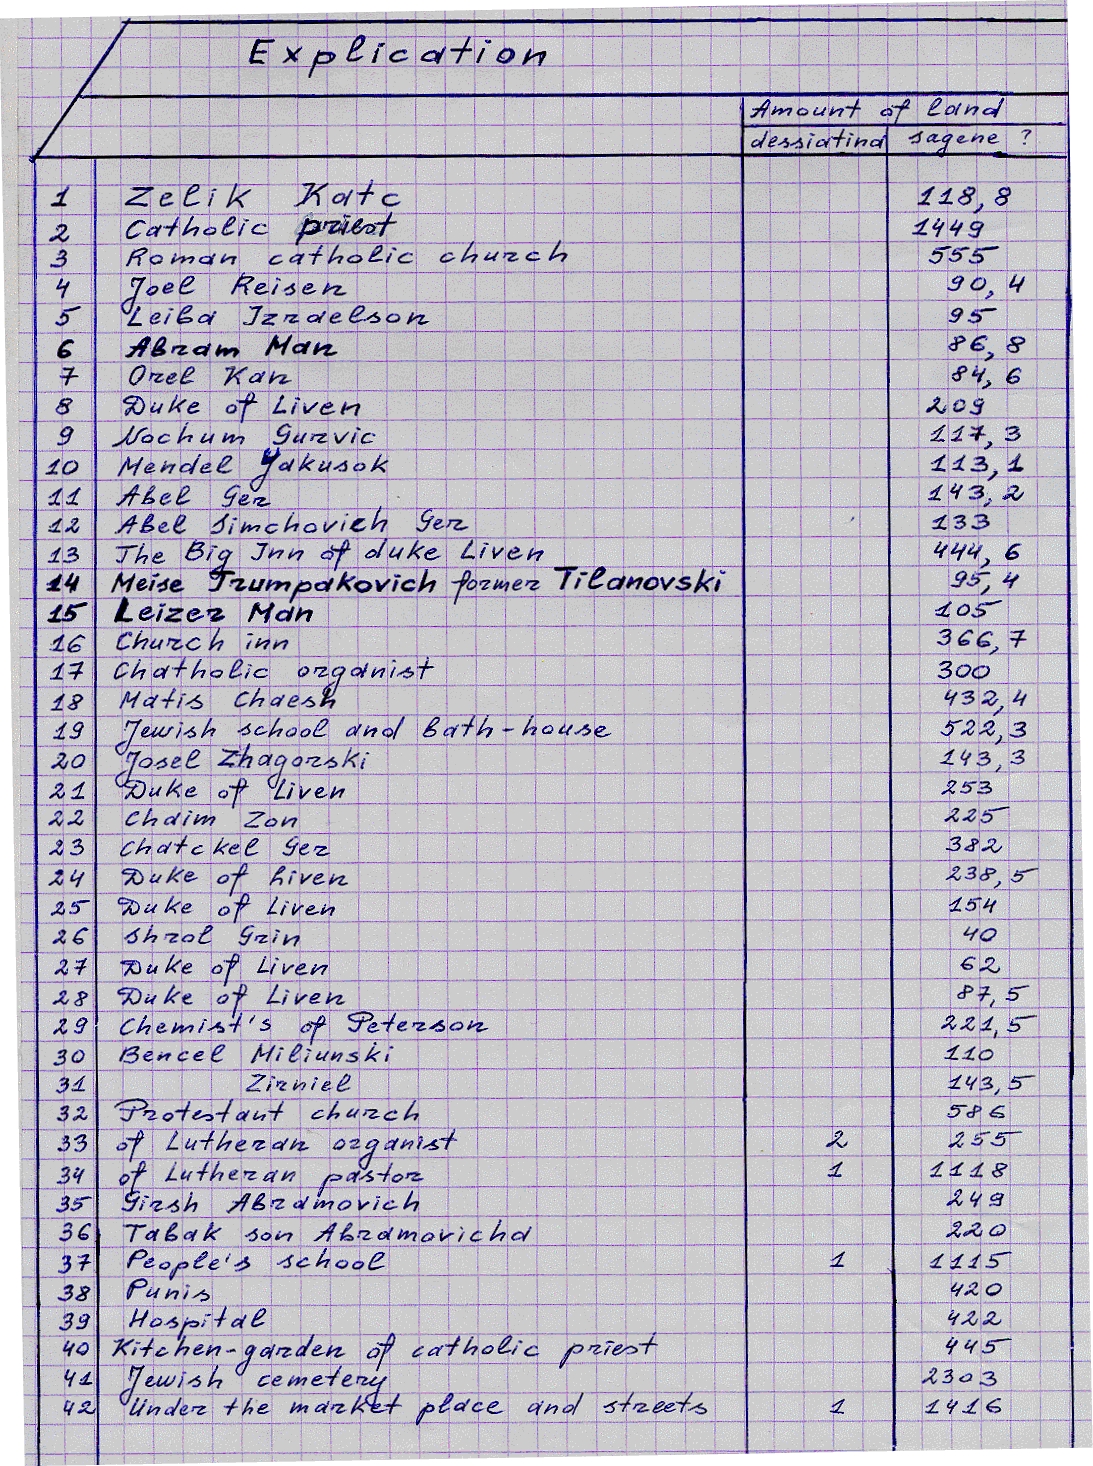 Explication
Amount of land
dessiatina sagene ?
1 Zelik Katc 118,8
2 Catholic priest 1449
3 Roman catholic church 555
4 Joel Reisen 90,4
5 Leiba Izraelson 95
6 Abram Man 86,8
7 Orel Kan 84,6
8 Duke of Liven 209
9 Nochum Gurvic 117,3
10 Mendel Yakusok 113,1
11 Abel Ger 143,2
12 Abel Simchovich Ger 133
13 The Big Inn of duke Liven 444,6
14 Meise Trumpakovich former Tilanovski 95,4
15 Leizer Man 105
16 Church inn 366,7
17 Chatholic organist 300
18 Matis Chaesh 432,4
19 Jewish school and bath-house 522,3
20 Josel Zhagorski 143,3
21 Duke of Liven 253
22 Chaim Zon 225
23 Chatckel Ger 382
24 Duke of Liven 238,5
25 Duke of Liven 154
26 Shrol Grin 40
27 Duke of Liven 62
28 Duke of Liven 87,5
29 Chemist's of Peterson 221,5
30 Bencel Miliunski 110
31 Zirniel 143,5
32 Protestant church 586
33 of Lutheran organist 2 255
34 of Lutheran pastor 1 1118
35 Girsh Abramovich 249
36 Tabak son Abramovicha 220
37 People's school 1 1115
38 Punis 420
39 Hospital 422
40 Kitchen-garden of catholic priest 445
41 Jewish cemetery 2303
42 Under the market place and streets 1 1416